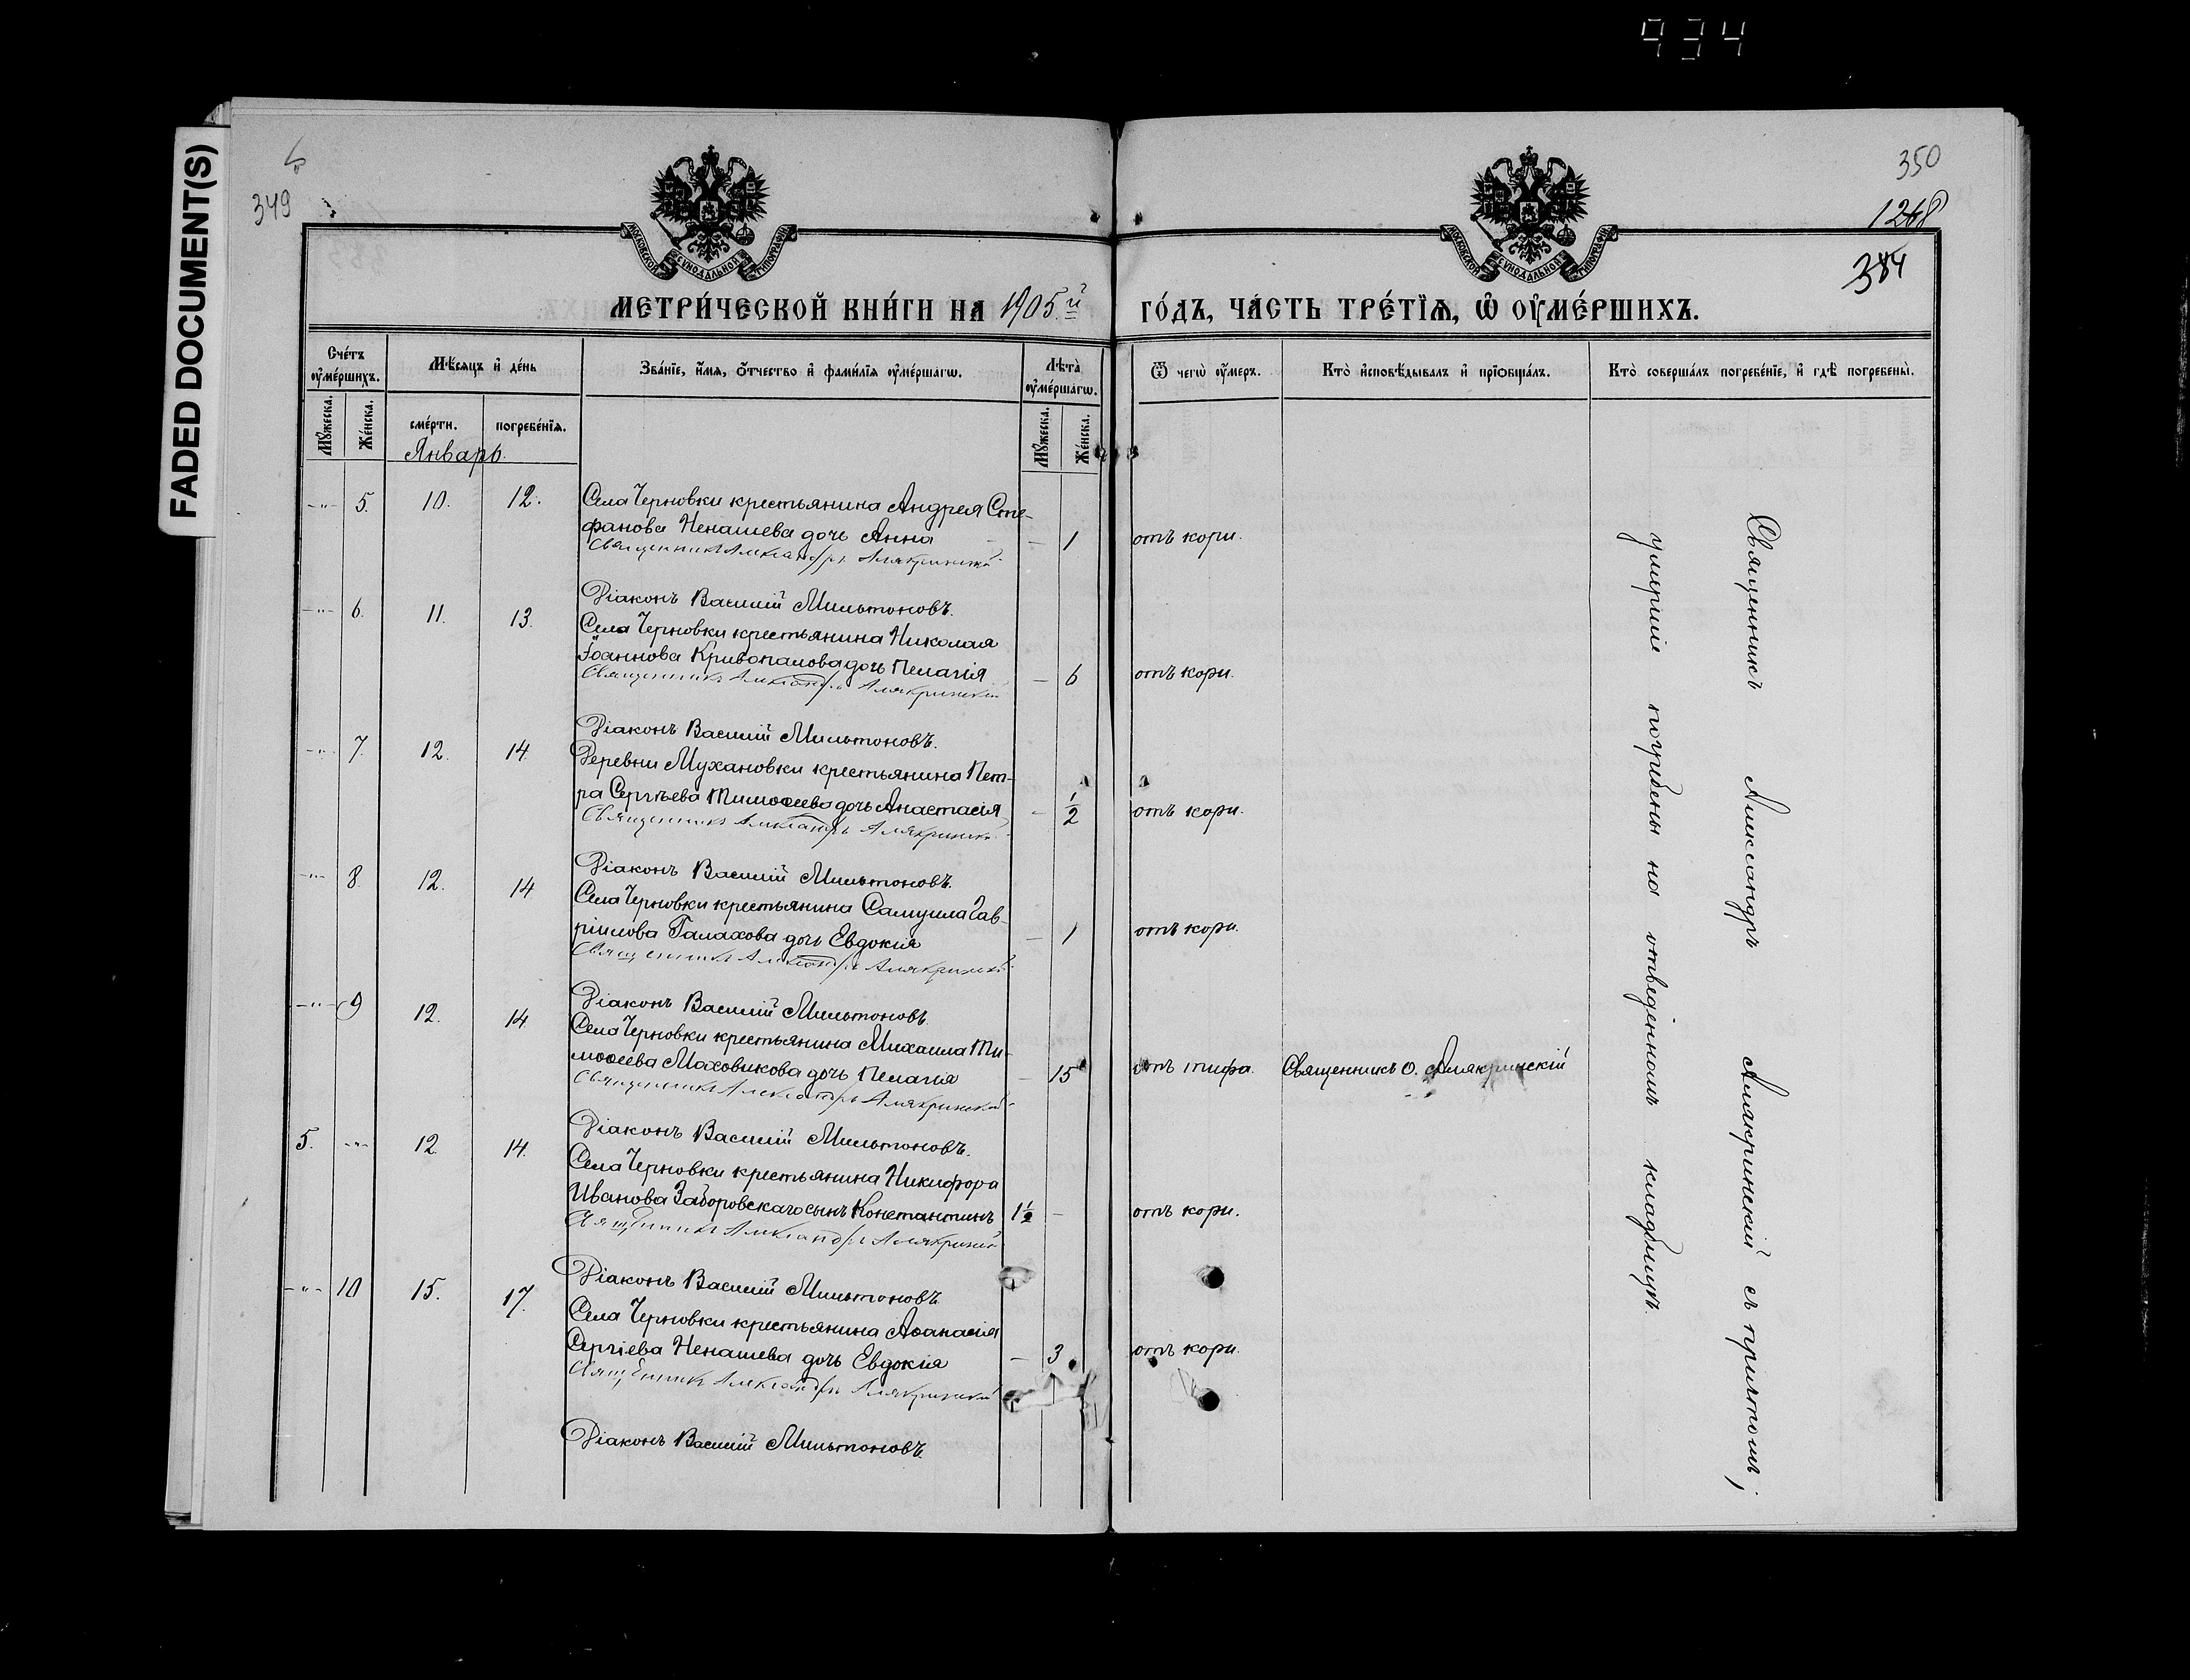 934
FADED DOCUMENT(S)
349
350
1268
384
МОСКОВСКОЙ СУНОДАЛЬНОЙ ТИПОГРАФІИ
МОСКОВСКОЙ СУНОДАЛЬНОЙ ТИПОГРАФІИ
МЕТРИ́ЧЕСКОЙ КНИ́ГИ НА 1905.й ГО́ДЪ, ЧА́СТЬ ТРЕ́ТЇѦ, Ѡ҆ ОУ҆МЕ́РШИХЪ.
Сче́тъ оу҆ме́ршихъ.
Мꙋ́жеска.
Же́нска.
Мѣ́сяцъ и҆ де́нь
сме́рти.
погребе́нїѧ.
Январь.
Зва́нїе, и҆́мѧ, ѻ҆́тчество и҆ фами́лїѧ оу҆ме́ршагѡ.
Лѣ́та оу҆ме́ршагѡ.
Мꙋ́жеска.
Же́нска.
Ѿ чегѡ̀ оу҆́меръ.
Кто̀ и҆сповѣ́дывалъ и҆ прїѡбща́лъ.
Кто̀ соверша́лъ погребе́нїе, и҆ гдѣ̀ погребены̀.
-"- 5. 10. 12. Села Черновки крестьянина Андрея Сте-
фанова Ненашева дочь Анна - 1 отъ кори.
Священникъ Александръ Алякринскій
Діаконъ Василій Мильтоновъ.
-"- 6. 11. 13. Села Черновки крестьянина Николая
Іоаннова Кривопалова дочь Пелагія - 6 отъ кори.
Священникъ Александръ Алякринскій
Діаконъ Василій Мильтоновъ.
-"- 7. 12. 14. Деревни Мухановки крестьянина Пет-
ра Сергѣева Тимоѳеева дочь Анастасія - 1/2 отъ кори.
Священникъ Александръ Алякринскій
Діаконъ Василій Мильтоновъ.
-"- 8. 12. 14 Села Черновки крестьянина Самуила Гав-
ріилова Галахова дочь Евдокія - 1 отъ кори.
Священникъ Александръ Алякринскій
Діаконъ Василій Мильтоновъ.
-"- 9 12. 14. Села Черновки крестьянина Михаила Ти-
моѳеева Маховикова дочь Пелагія - 15 отъ тифа. Священникъ О. Алякринскій
Священникъ Александръ Алякринскій
Діаконъ Василій Мильтоновъ.
5. -"- 12. 14. Села Черновки крестьянина Никифора
Иванова Заборовскаго сынъ Константинъ 1 1/2 - отъ кори.
Священникъ Александръ Алякринскій
Діаконъ Василій Мильтоновъ.
-"- 10 15. 17. Села Черновки крестьянина Аѳанасія
Сергіева Ненашева дочь Евдокія - 3 отъ кори.
Священникъ Александръ Алякринскій
Діаконъ Василій Мильтоновъ.
Священникъ Александръ Алякринскій съ причтомъ;
умершіе погребены на отведенномъ кладбищѣ.